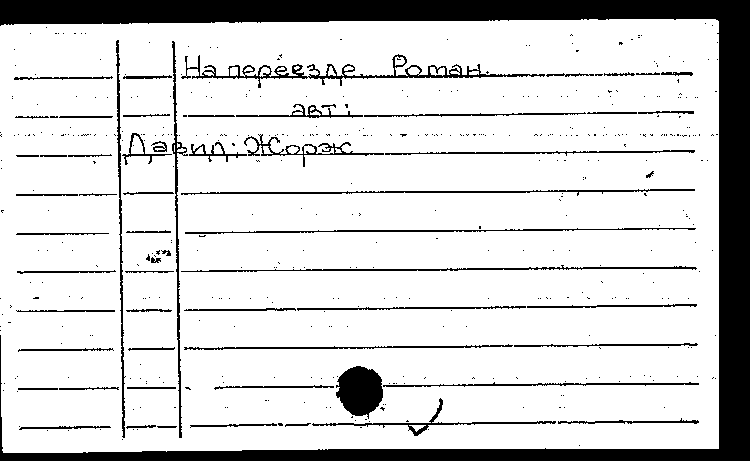 На переезде. Роман.
авт:
Давид: Жорж